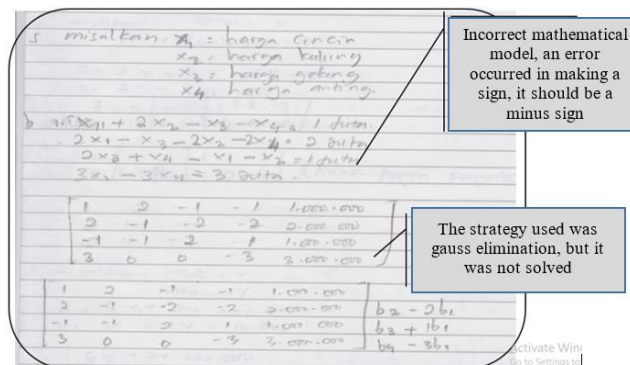 5 misalkan x₁ = harga cincin
x₂ = harga kalung
x₃ = harga gelang
x₄ = harga anting
x₁ + 2x₂ - x₃ - x₄ = 1 juta
2x₁ - x₃ - 2x₂ - 2x₄ = 2 juta
2x₃ + x₄ - x₁ - x₂ = 1 juta
3x₁ - 3x₄ = 3 juta
1 2 -1 -1 1.000.000
2 -1 -2 -2 2.000.000
-1 -1 2 1 1.000.000
3 0 0 -3 3.000.000
1 2 -1 -1 1.000.000
2 -1 -2 -2 2.000.000 b2 - 2b1
-1 -1 2 1 1.000.000 b3 + 1b1
3 0 0 -3 3.000.000 b4 - 3b1
Incorrect mathematical
model, an error
occurred in making a
sign, it should be a
minus sign
The strategy used was
gauss elimination, but it
was not solved
Activate Win
Go to Settings to